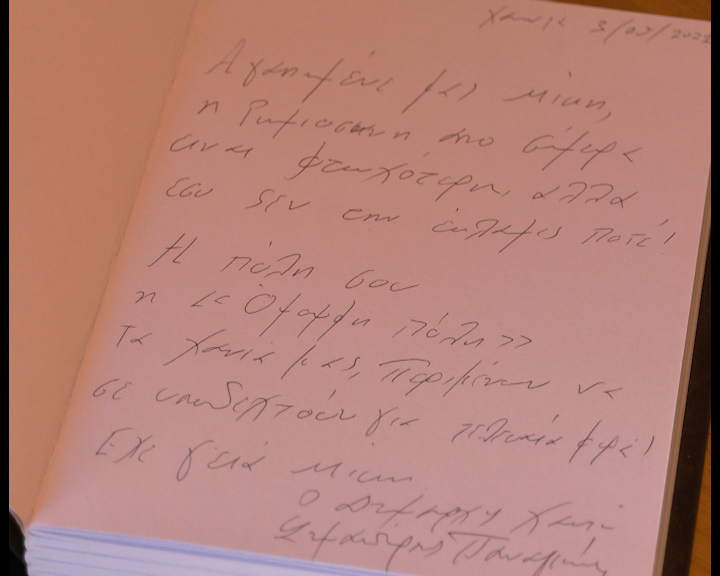 Χανιά 3/09/2021
Αγαπημένε μας Μίκη,
η Ρωμιοσύνη από σήμερα
είναι φτωχότερη, αλλά
εσύ δεν την έκλαψες ποτέ!
Η πόλη σου
η «Όμορφη πόλη»
Τα Χανιά μας, περιμένουν να
σε υποδεχτούν για τελευταία φορά!
Έχε γειά Μίκη
Ο Δήμαρχος Χανίων
Παναγιώτης Σημανδηράκης